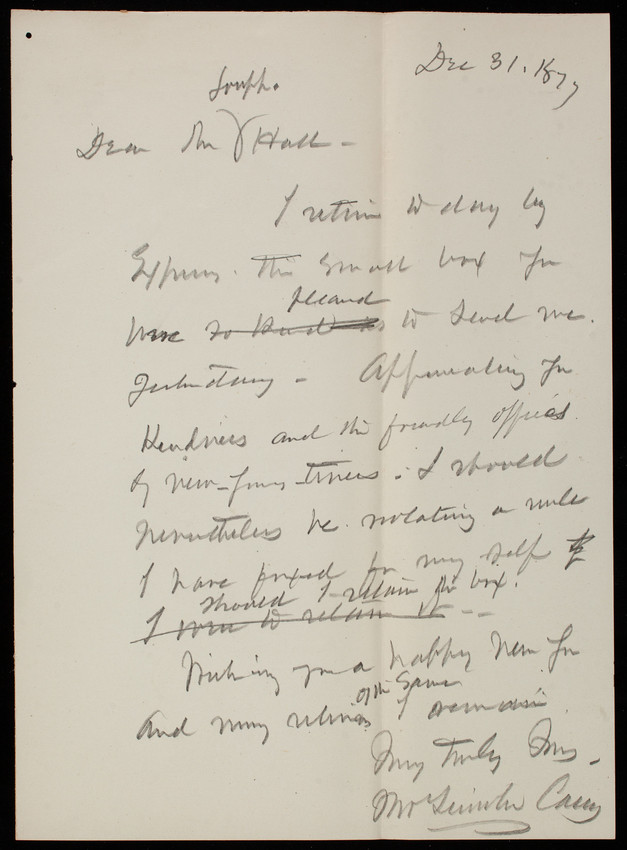 Dec 31. 1877
Dear Mr Hall -
I return to day by
Express. the small box you
pleased
were so kind as to send me.
yesterday - Appreciating your
kindness and the friendly offices
of new-years-times - I should
nevertheless be violating a rule
I have fixed for my self if
should I retain the box.
I were to retain it - -
Wishing you a happy New Year
of the Same
and many returns I remain
Very truly Yours -
Thos Lincoln Casey